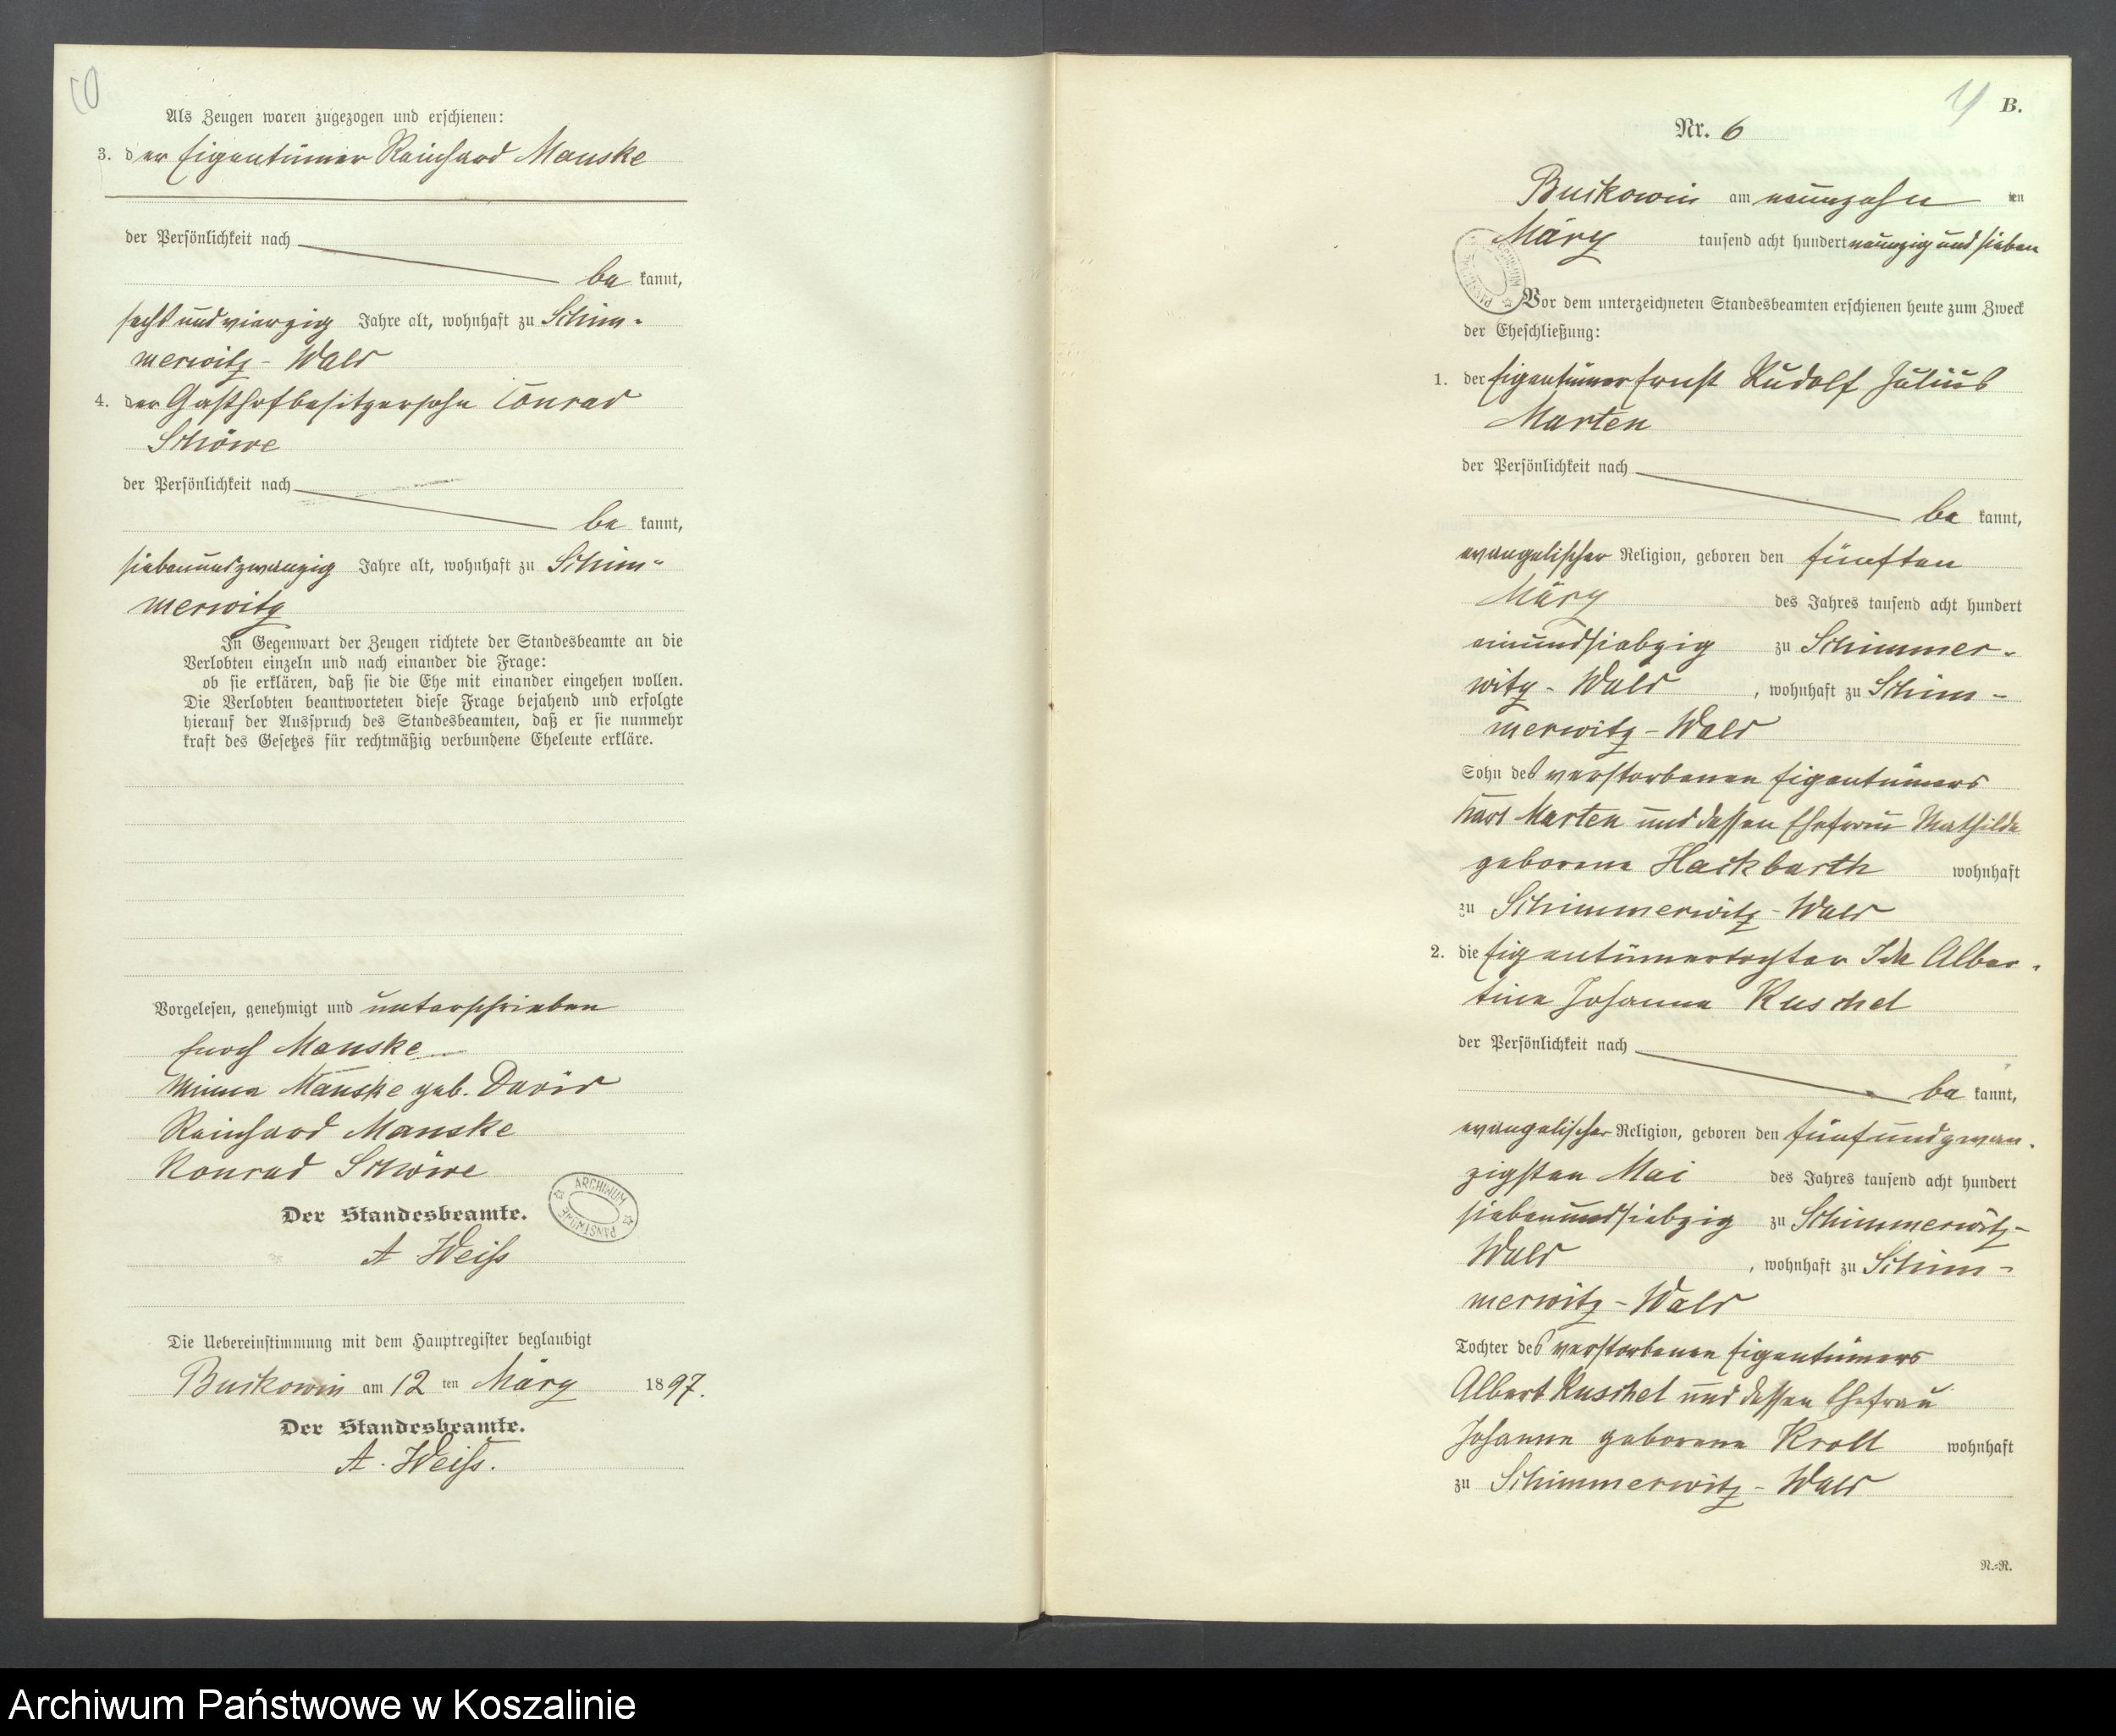 10
Als Zeugen waren zugezogen und erschienen:
3. der Eigentümer Reinhard Manske
der Persönlichkeit nach
be kannt,
sechsundvierzig Jahre alt, wohnhaft zu Schim-
merwitz-Wald
4. der Gasthofbesitzersohn Conrad
Schöwe
der Persönlichkeit nach
be kannt,
siebenundzwanzig Jahre alt, wohnhaft zu Schim-
merwitz
In Gegenwart der Zeugen richtete der Standesbeamte an die
Verlobten einzeln und nach einander die Frage:
ob sie erklären, daß sie die Ehe mit einander eingehen wollen.
Die Verlobten beantworteten diese Frage bejahend und erfolgte
hierauf der Ausspruch des Standesbeamten, daß er sie nunmehr
kraft des Gesetzes für rechtmäßig verbundene Eheleute erkläre.
Vorgelesen, genehmigt und unterschrieben
Manske
Minna Manske geb. David
Reinhard Manske
Konrad Schöwe
Der Standesbeamte.
ARCHIWUM PAŃSTWOWE
A Weiß
Die Uebereinstimmung mit dem Hauptregister beglaubigt
Buckowin am 12 ten März 1897.
Der Standesbeamte.
A. Weiß.
B.
Nr. 6
Buckowin am neunzehn ten
März tausend acht hundert neunzig und sieben
Vor dem unterzeichneten Standesbeamten erschienen heute zum Zweck
der Eheschließung:
1. der Eigentümer Ernst Rudolf Julius
Marten
der Persönlichkeit nach
be kannt,
evangelischer Religion, geboren den fünften
März des Jahres tausend acht hundert
einundsiebzig zu Schimmer-
witz-Wald, wohnhaft zu Schim-
merwitz-Wald
Sohn des verstorbenen Eigentümers
Karl Marten und dessen Ehefrau Mathilde
geborene Hackbarth wohnhaft
zu Schimmerwitz-Wald
2. die Eigentümertochter Ida Alber-
tine Johanna Ruschel
der Persönlichkeit nach
be kannt,
evangelischer Religion, geboren den fünfundzwan-
zigsten Mai des Jahres tausend acht hundert
siebenundsiebzig zu Schimmerwitz-
Wald, wohnhaft zu Schim-
merwitz-Wald
Tochter des verstorbenen Eigentümers
Albert Ruschel und dessen Ehefrau
Johanna geborene Kroll wohnhaft
zu Schimmerwitz-Wald
N.-R.
Archiwum Państwowe w Koszalinie